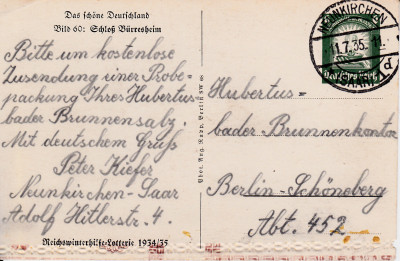 Das schöne Deutschland
Bild 60: Schloß Bürresheim
Bitte um kostenlose
Zusendung einer Probe-
packung Ihres Hubertus-
bader Brunnensalz.
Mit deutschem Gruß
Peter Kiefer
Neunkirchen-Saar
Adolf Hitlerstr. 4.
Reichswinterhilfe-Lotterie 1934/35
NEUNKIRCHEN
11.7.35.
(SAAR) 1
Hubertus-
bader Brunnenkontor
Berlin-Schöneberg
Abt. 452